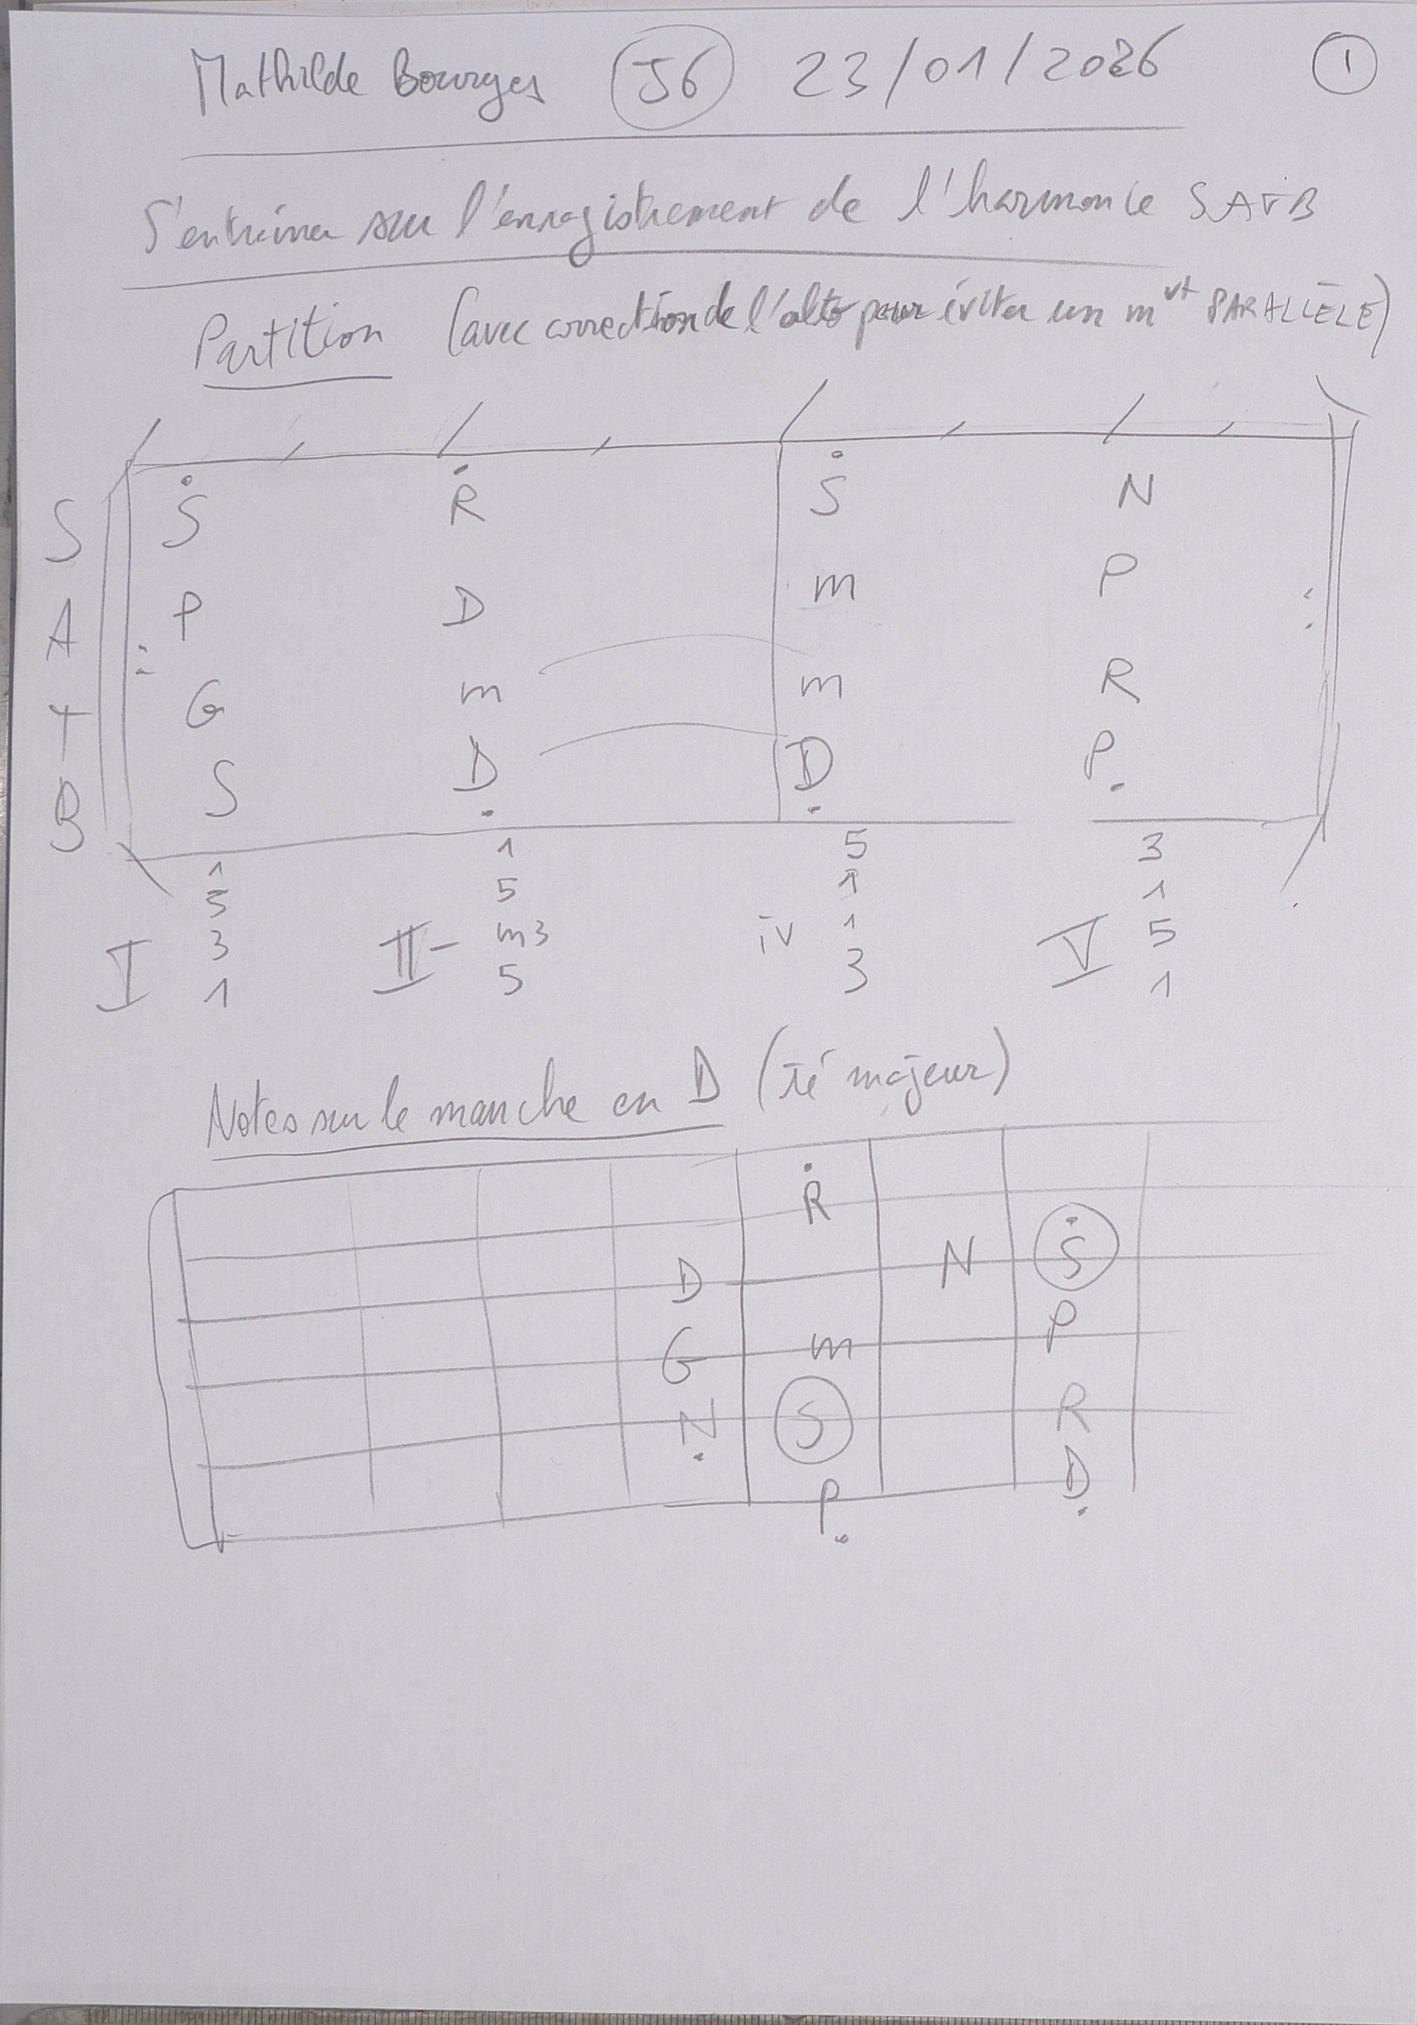 Mathilde Bourges J6 23/01/2026 1
S'entraîner sur l'enregistrement de l'harmonie SATB
Partition (avec correction de l'alto pour éviter un mvt PARALLÈLE)
S Ṡ Ṙ Ṡ N
A P D m P
T G m m R
B S Ḍ Ḍ P̣
1 1 5 3
5 5 1 1
I 3 II- m3 iv 1 V 5
1 5 3 1
Notes sur le manche en D (ré majeur)
Ṙ
D N Ṡ
G m P
Ṇ S R
P̣ Ḍ